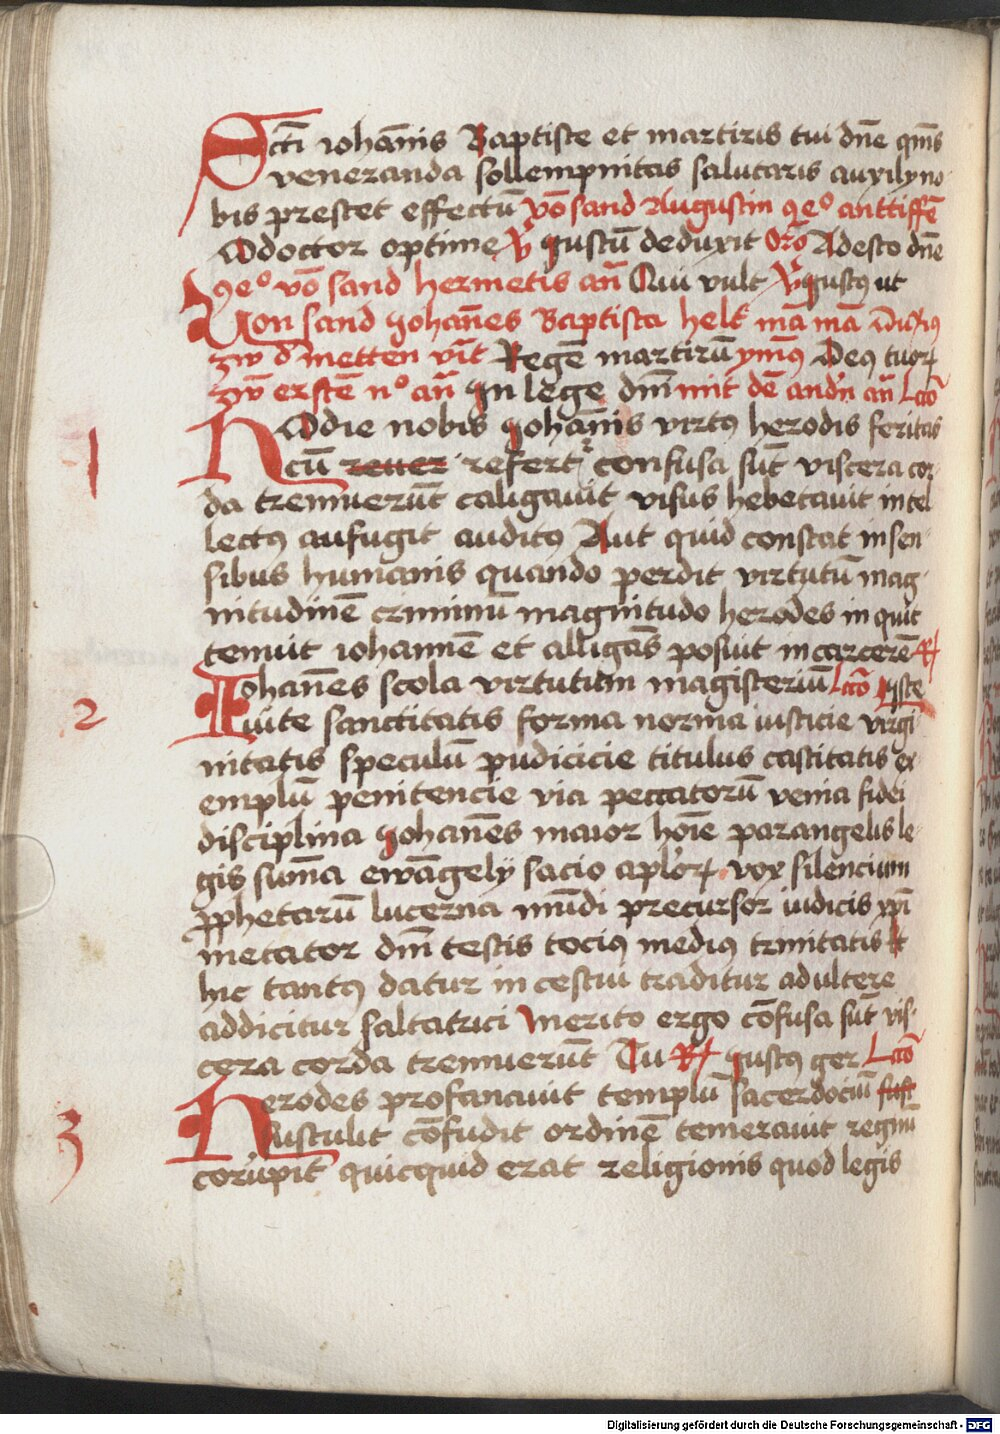 Scti iohānis Baptiste et martiris tui dn̄e qm̄s
veneranda sollempnitas salutaris auxily no
bis prestet effectū vō sand Augustin ꝯeº anttiffē
O doctor optime V̄ Iustū deduxit Orō Adesto dn̄e
ꝯeº vō sand hermetis an̄ Qui vult V̄ Iustꝯ ut
Von sand Johan̄es Baptista helt mā mā
zw d' metten vīt Regē martirū ymꝯ Deꝯ tuoꝝ
zū erstē nº an̄ In lege dn̄i mit dē and'n an̄ Lcō
1
Hodie nobis Johan̄is virtꝯ herodis feritas
cū refert confusa sūt viscera cor
da tremuerūt caligavit visus hebetavit intel
lectꝯ aufugit auditꝯ Aut quid constat in sen
sibus humanis quando perdit virtutū mag
nitudinē criminū magnitudo herodes in quit
tenuit iohannē et alligās posuit in carcerē R
Johan̄es scola virtutum magisteriū Lcō Iste
2
vite sanctitatis forma norma iusticie virgi
nitatis speculū pudicicie titulus castitatis ex
emplū penitencie via peccatorū venia fidei
disciplina Johan̄es maior hoīe par angelis le
gis sum̄a ewāgely sacio apl'oꝝ vox silencium
ꝓphetarū lucerna mūdi precursor iudicis xp̄i
metator dn̄i testis tociꝯ mediꝯ trinitatis Et
hic tantꝯ datur in cestui traditur adultere
addicitur saltatrici Merito ergo cōfusa sūt vis
cera corda tremuerūt Tu R Iustꝯ ger Lcō
3
Herodes profanavit templū sacerdociū
sustulit cōfudit ordinē temeravit regnū
corrupit quicquid erat religionis quod legis
Digitalisierung gefördert durch die Deutsche Forschungsgemeinschaft - DFG